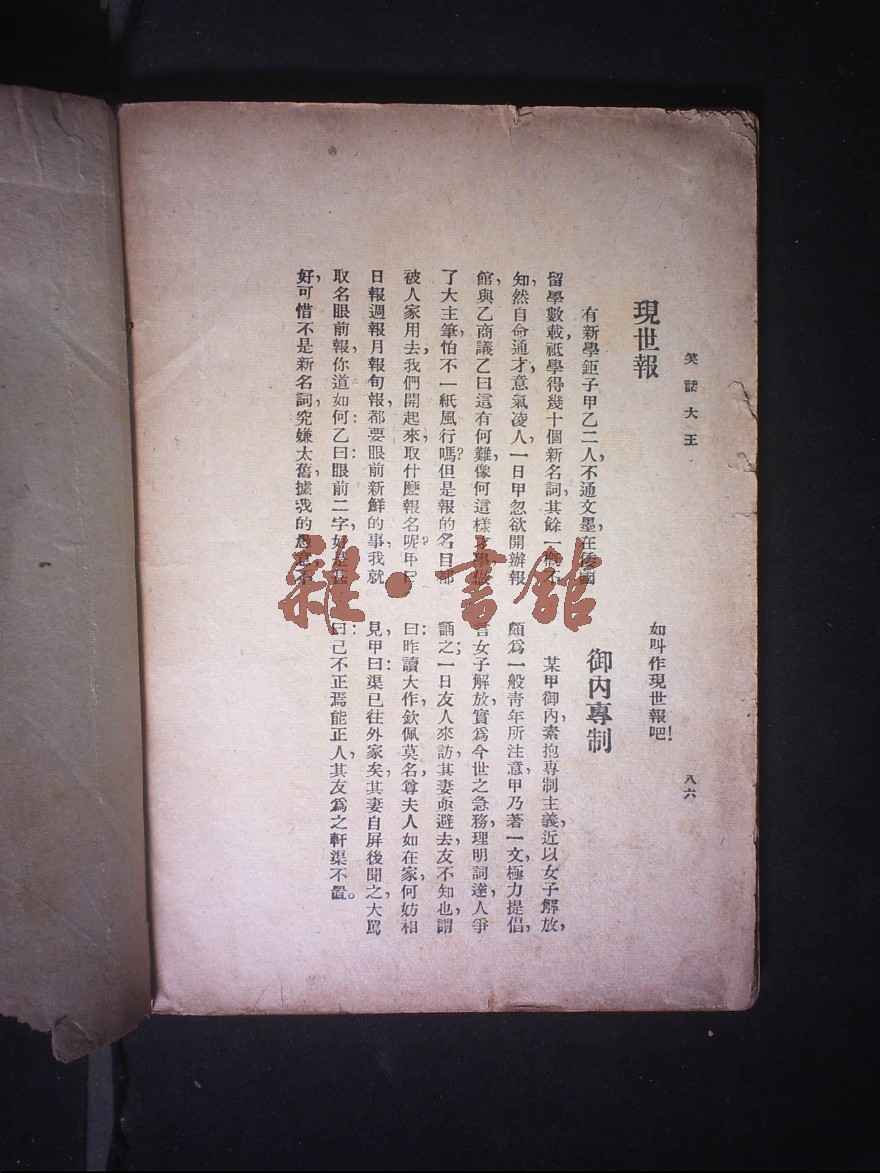 笑話大王
現世報
有新學鉅子甲乙二人,不通文墨,在倭國
留學數載,祗學得幾十個新名詞,其餘一概不
知,然自命通才,意氣凌人,一日甲忽欲開辦報
館,與乙商議,乙曰:這有何難,像何這樣才學做
了大主筆,怕不一紙風行嗎?但是報的名目都
被人家用去,我們開起來,取什麽報名呢?甲曰
日報週報月報旬報,都要眼前新鮮的事,我就
取名眼前報,你道如何:乙曰:眼前二字,好是甚
好,可惜不是新名詞,究嫌太舊,據我的愚意,不
如叫作現世報吧!
御內專制
某甲御內,素抱專制主義,近以女子解放,
頗爲一般靑年所注意,甲乃著一文,極力提倡,
言女子解放,實爲今世之急務,理明詞達,人爭
誦之;一日友人來訪,其妻亟避去,友不知也,謂
曰:昨讀大作,欽佩莫名,尊夫人如在家,何妨相
見,甲曰:渠已往外家矣,其妻自屏後聞之,大罵
曰:己不正焉能正人,其友爲之軒渠不置。
八六
雜·書館